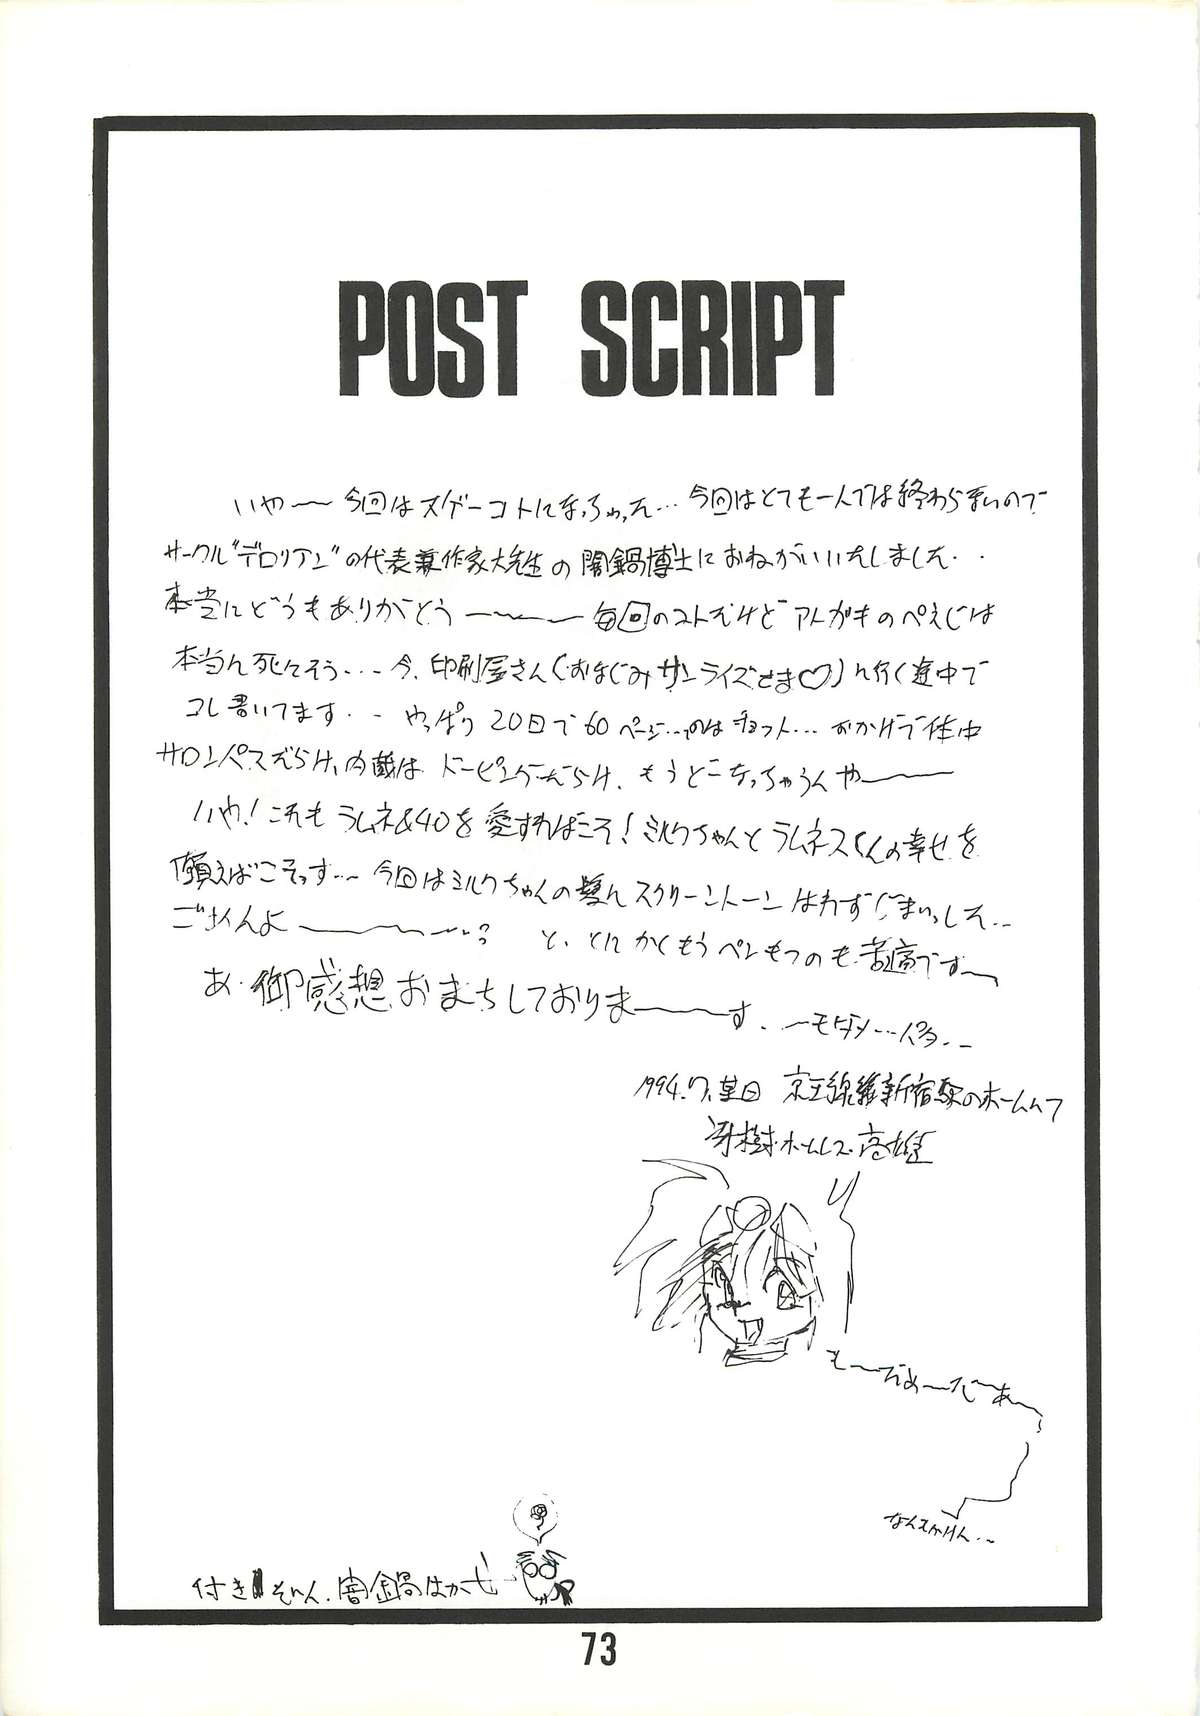 POST SCRIPT
いや〜〜今回はスゲーコトになっちゃった…今回はとても一人では終わらないので
サークル"デロリアン"の代表兼作家大先生の闇鍋博士におねがいいたしました・・
本当にどうもありがとう〜〜〜毎回のコトだけどアトガキのぺえじは
本当に死にそう…今、印刷屋さん(おなじみサンライズさま♡)に行く途中で
コレ書いてます・・やっぱり20日で60ページ…てのはチョット…おかげで体中
サロンパスだらけ、内蔵はドーピングだらけ、もうどーなっちゃうんや〜〜
いや!これもラムネ&40を愛すればこそ!ミルクちゃんとラムネスくんの幸せを
願えばこそっす…今回はミルクちゃんの髪にスクリーントーンはれず
ごめんよ〜〜〜? と、とにかくもうペンもつのも苦痛です〜
あ・御感想おまちしておりま〜〜す.
1994.7.某日 京王線新宿駅のホームにて
冴樹・ホームレス・高雄
も〜だめ〜だ〜あ〜
闇鍋はかせ
73